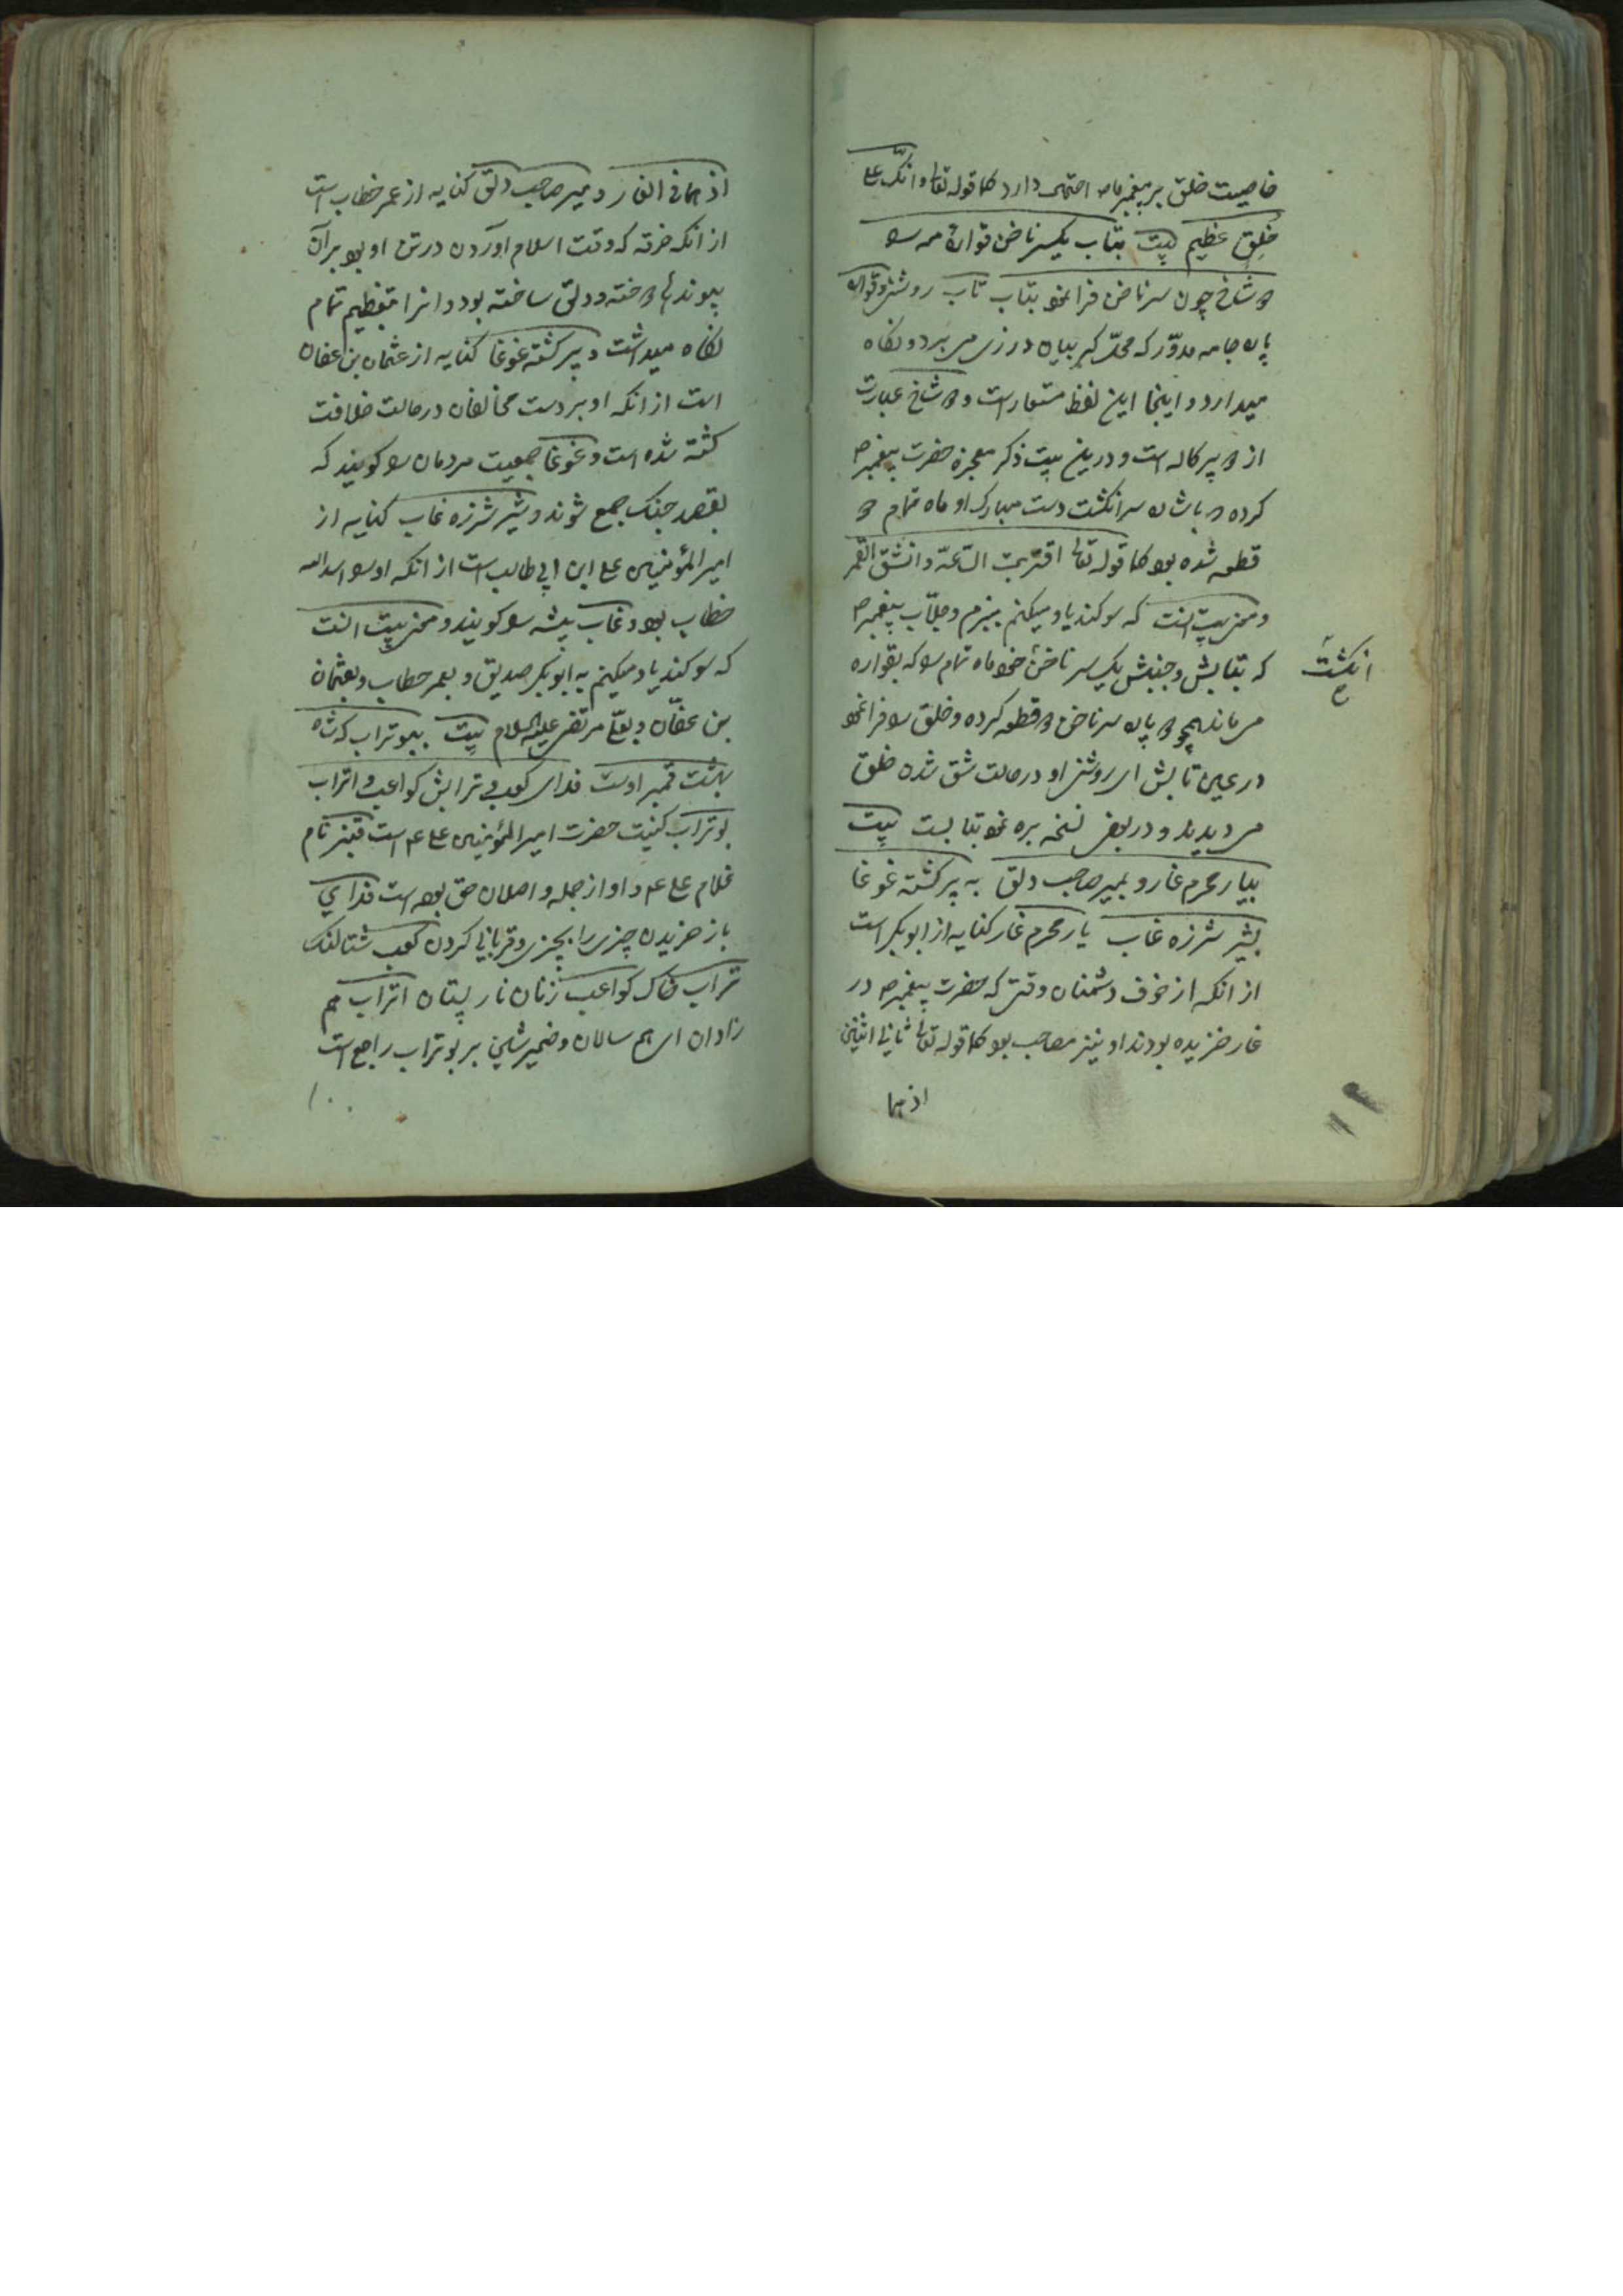 خاصیت خلق بر پیغمبر ما ص اختصاص دارد کما قوله تعالی وانک علی
خلق عظیم بیت بتاب یکسر ناخن قواره مه را
دو شاخ چون سر ناخن فرا نمود بتاب تاب روشنی و قواره
پاره جامه مدور که محل گریبان درزی می برد و نگاه
میدارد و اینجا این لفظ مستعار است دو شاخ عبارت
از دو پرکاله است و درین بیت ذکر معجزه حضرت پیغمبر ص
کرده که باشاره سر انگشت دست مبارک او ماه تمام دو
قطعه شده بود کما قوله تعالی اقتربت الساعة وانشق القمر
و معنی بیت آنست که سوگند یاد میکنم پیغمبر ص
که بتابش و جنبش یک سر ناخن خود ماه تمام را که بقواره
انگشت
می ماند همچو دو پاره سر ناخن دو قطعه کرده و خلق را فرا نمود
در عین تابش ای روشنی او در حالت شق شدن خلق
می دیدند و در بعضی نسخه بره نمود بتابست بیت
بیار محرم غار و بمیر صاحب دلق به پیر کشته غوغا
بشیر شرزه غاب یار محرم غار کنایه از ابوبکر است
از انکه از خوف دشمنان وقتی که حضرت پیغمبر ص در
غار خزیده بودند او نیز مصاحب بود کما قوله تعالی ثانی اثنین
اذ هما
اذ هما فی الغار و میر صاحب دلق کنایه از عمر خطاب است
از انکه خرقه که وقت اسلام اوردن در تن او بود بران
پیوندها دوخته و دلق ساخته بود و انرا بتعظیم تمام
نگاه میداشت و پیر کشته غوغا کنایه از عثمان بن عفان
است از انکه او بر دست مخالفان در حالت خلافت
کشته شده است و غوغا جمعیت مردمان را گویند که
بقصد جنگ جمع شوند و شیر شرزه غاب کنایه از
امیر المؤمنین علی ابن ابی طالب است از انکه او را اسد الله
خطاب بود و غاب بیشه را گویند و معنی بیت انست
که سوگند یاد میکنم به ابوبکر صدیق و بعمر خطاب و بعثمان
بن عفان و بعلی مرتضی علیه السلام بیت ببو تراب که شاه
بهشت قنبر اوست فدای کعب و ترابش کواعب و اتراب
بوتراب کنیت حضرت امیر المؤمنین علی ع است قنبر نام
غلام علی ع و او از جمله واصلان حق بوده است فدای
باز خریدن چیزی را بچیزی و قربانی کردن کعب شتالنگ
تراب خاک کواعب زنان نار پستان اتراب هم
زادان ای هم سالان و ضمیر شین بر بوتراب راجع است